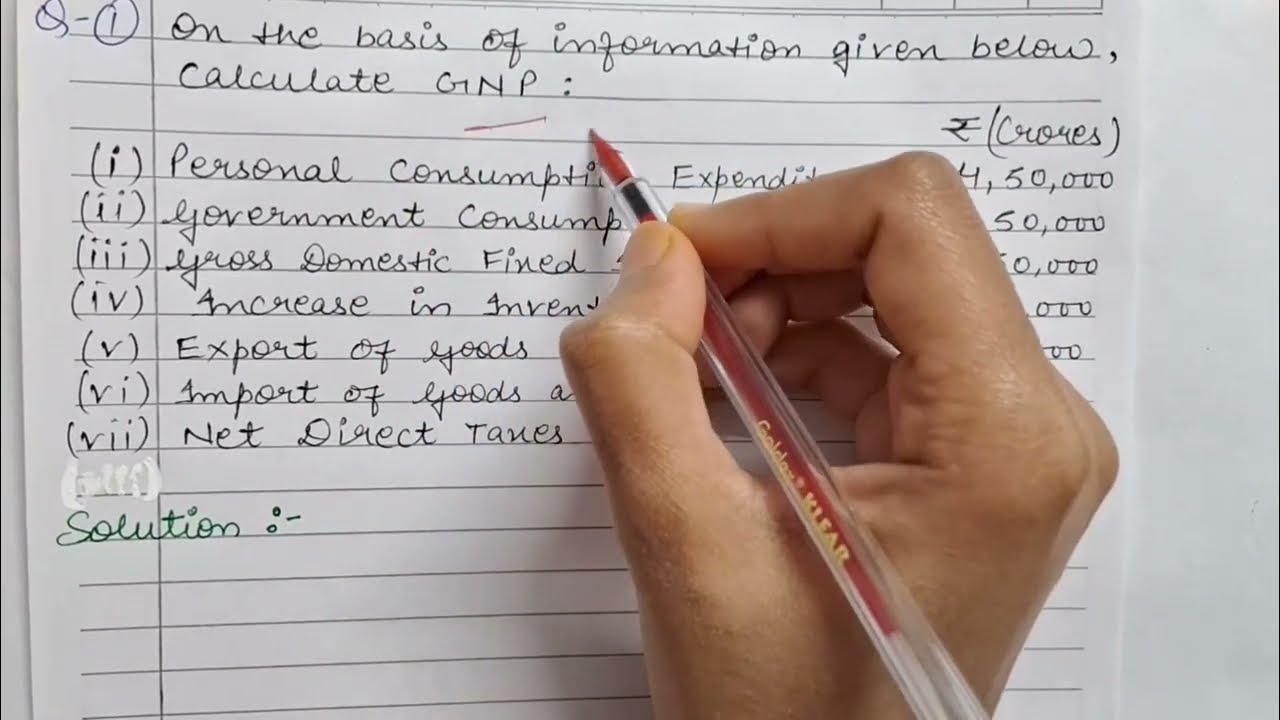 Q-①
On the basis of information given below,
Calculate GNP:
₹(Crores)
(i) Personal Consumpti Expendit 4,50,000
(ii) Government Consump 50,000
(iii) Gross Domestic Fixed 0,000
(iv) Increase in Invent ,000
(v) Export of Goods 00
(vi) Import of Goods a
(vii) Net Direct Taxes
Solution :-
Golden KLEAR